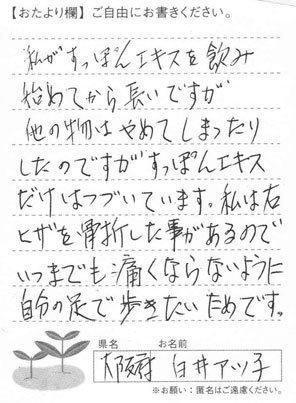 【おたより欄】ご自由にお書きください。
私がすっぽんエキスを飲み
始めてから長いですが
他の物はやめてしまったり
したのですがすっぽんエキス
だけはつづいています。私は右
ヒザを骨折した事があるので
いつまでも痛くならないように
自分の足で歩きたいためです。
県名 お名前
大阪府 白井アツ子
※お願い：匿名はご遠慮ください。